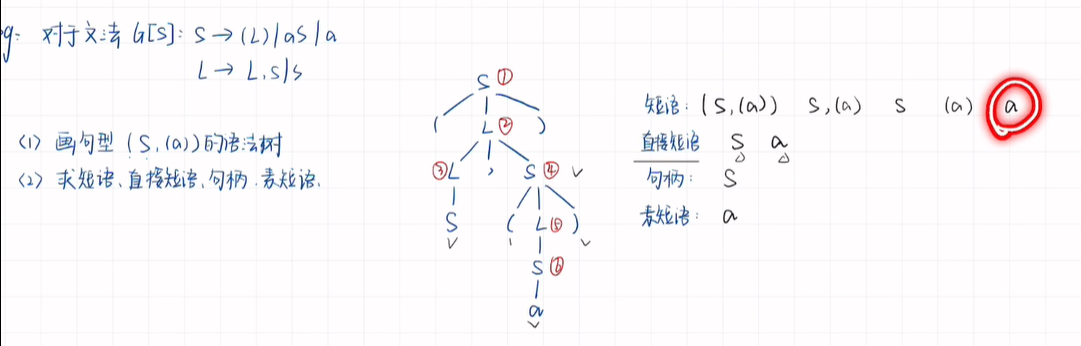 eg: 对于文法 G[S]: S → (L) | aS | a
L → L,S | S
(1) 画句型 (S,(a)) 的语法树
(2) 求短语、直接短语、句柄、素短语.
S ①
( L ② )
③ L , S ④
S ( L ⑤ )
S ⑥
a
短语: (S,(a)) S,(a) S (a) a
直接短语 S a
句柄: S
素短语: a